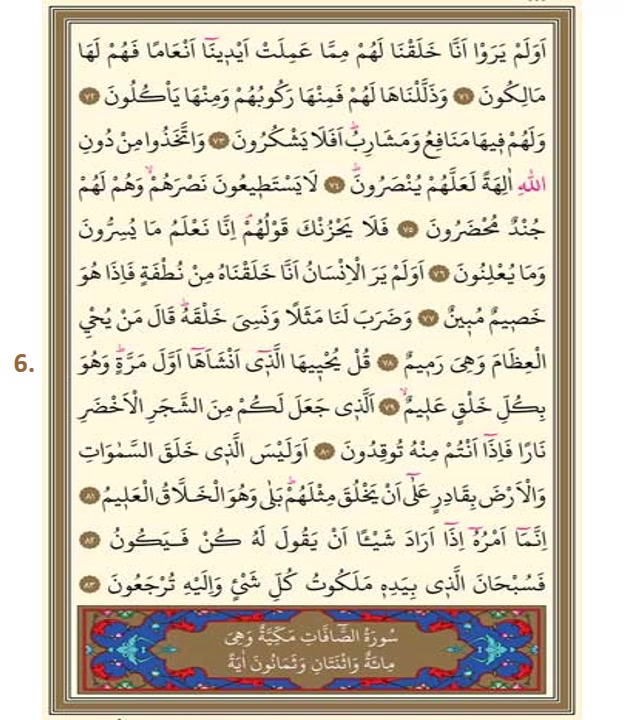 اَوَلَمْ يَرَوْا اَنَّا خَلَقْنَا لَهُمْ مِمَّا عَمِلَتْ اَيْدٖينَٓا اَنْعَامًا فَهُمْ لَهَا
مَالِكُونَ ٧١ وَذَلَّلْنَاهَا لَهُمْ فَمِنْهَا رَكُوبُهُمْ وَمِنْهَا يَاْكُلُونَ ٧٢
وَلَهُمْ فٖيهَا مَنَافِعُ وَمَشَارِبُۜ اَفَلَا يَشْكُرُونَ ٧٣ وَاتَّخَذُوا مِنْ دُونِ
اللّٰهِ اٰلِهَةً لَعَلَّهُمْ يُنْصَرُونَۜ ٧٤ لَا يَسْتَطٖيعُونَ نَصْرَهُمْۙ وَهُمْ لَهُمْ
جُنْدٌ مُحْضَرُونَ ٧٥ فَلَا يَحْزُنْكَ قَوْلُهُمْۢ اِنَّا نَعْلَمُ مَا يُسِرُّونَ
وَمَا يُعْلِنُونَ ٧٦ اَوَلَمْ يَرَ الْاِنْسَانُ اَنَّا خَلَقْنَاهُ مِنْ نُطْفَةٍ فَاِذَا هُوَ
خَصٖيمٌ مُبٖينٌ ٧٧ وَضَرَبَ لَنَا مَثَلًا وَنَسِىَ خَلْقَهُۜ قَالَ مَنْ يُحْيِ
6. الْعِظَامَ وَهِىَ رَمٖيمٌ ٧٨ قُلْ يُحْيٖيهَا الَّذٖٓى اَنْشَاَهَٓا اَوَّلَ مَرَّةٍۜ وَهُوَ
بِكُلِّ خَلْقٍ عَلٖيمٌۙ ٧٩ اَلَّذٖى جَعَلَ لَكُمْ مِنَ الشَّجَرِ الْاَخْضَرِ
نَارًا فَاِذَٓا اَنْتُمْ مِنْهُ تُوقِدُونَ ٨٠ اَوَلَيْسَ الَّذٖى خَلَقَ السَّمٰوَاتِ
وَالْاَرْضَ بِقَادِرٍ عَلٰٓى اَنْ يَخْلُقَ مِثْلَهُمْۜ بَلٰى وَهُوَ الْخَلَّاقُ الْعَلٖيمُ ٨١
اِنَّمَٓا اَمْرُهُٓ اِذَٓا اَرَادَ شَيْـًٔا اَنْ يَقُولَ لَهُ كُنْ فَيَكُونُ ٨٢
فَسُبْحَانَ الَّذٖى بِيَدِهٖ مَلَكُوتُ كُلِّ شَيْءٍ وَاِلَيْهِ تُرْجَعُونَ ٨٣
سُورَةُ الصَّٓافَّاتِ مَكِّيَّةٌ وَهِىَ
مِائَةٌ وَاثْنَتَانِ وَثَمَانُونَ اٰيَةً